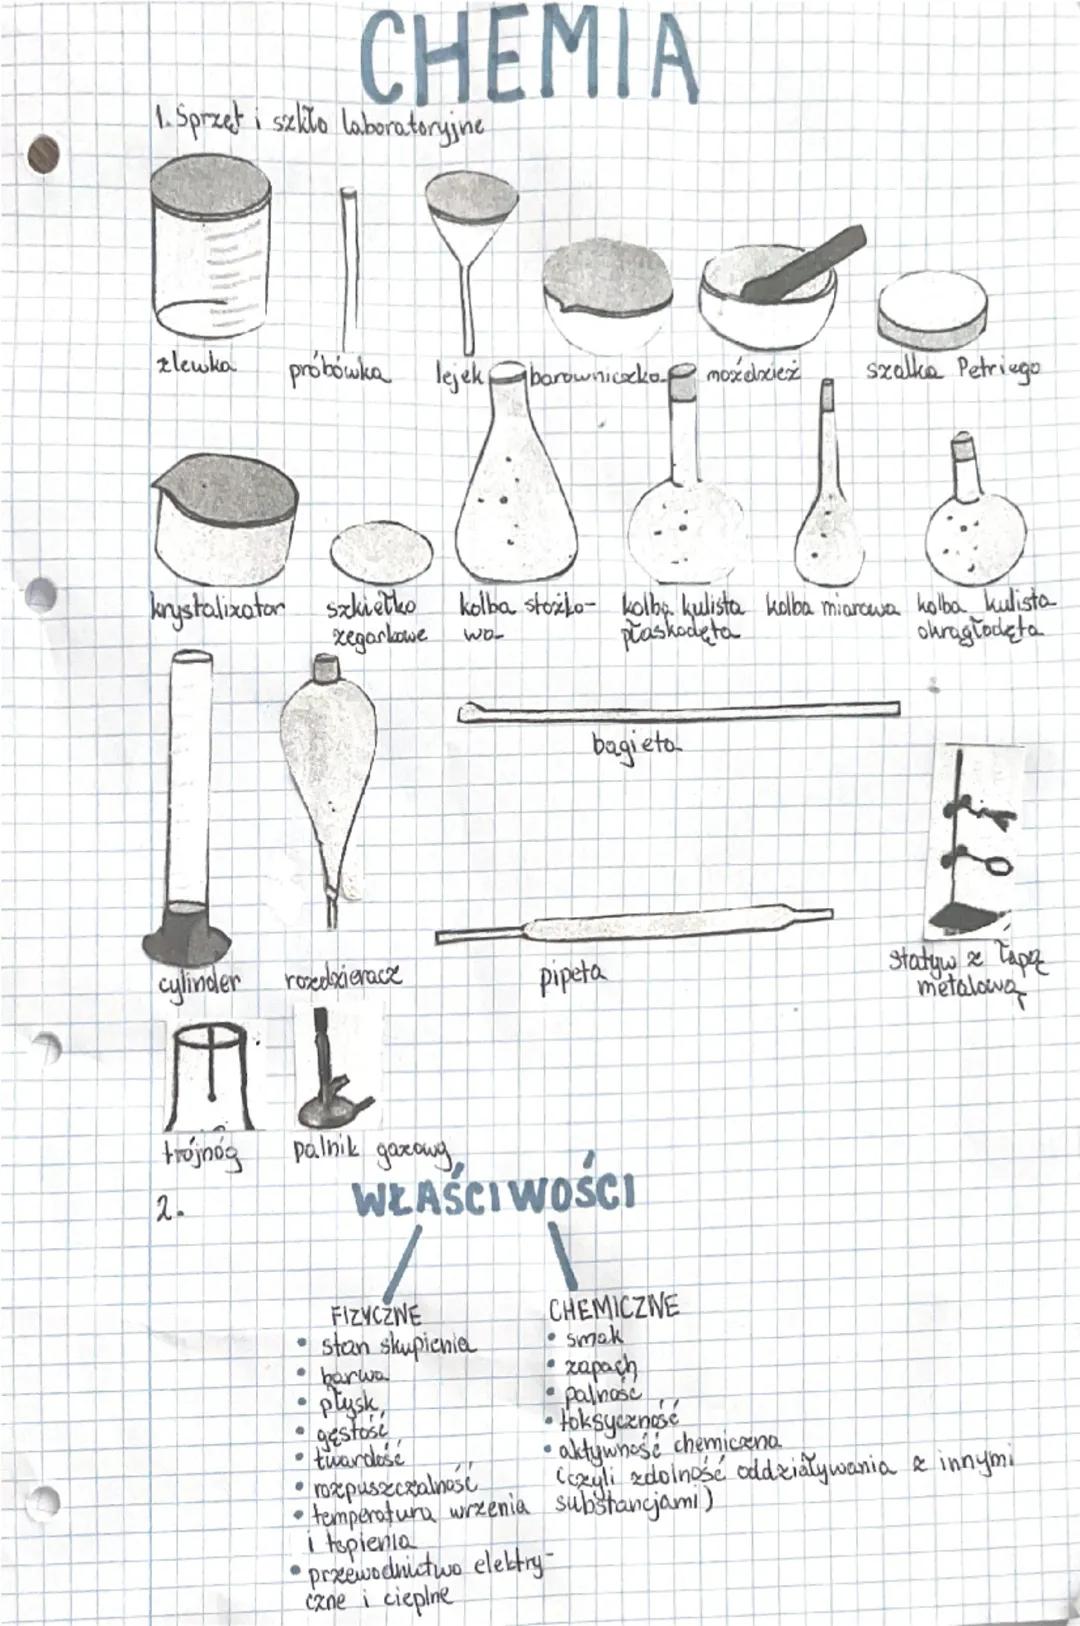 CHEMIA
1. Sprzęt i szkło laboratoryjne
zlewka próbówka lejek barowniczka moździeż szalka Petriego
krystalizator szkiełko zegarkowe kolba stożko-wa kolba kulista płaskodęta kolba miarowa kolba kulista okrągłodęta
bagieta
cylinder rozdzieracz pipeta statyw z łapą metalową
trójnóg palnik gazowy
2. WŁAŚCIWOŚCI
FIZYCZNE
• stan skupienia
• barwa
• płysk
• gęstość
• twardość
• rozpuszczalność
• temperatura wrzenia
i topienia
• przewodnictwo elektry-
czne i cieplne
CHEMICZNE
• smak
• zapach
• palność
• toksyczność
• aktywność chemiczna
(czyli zdolność oddziaływania z innymi
substancjami)